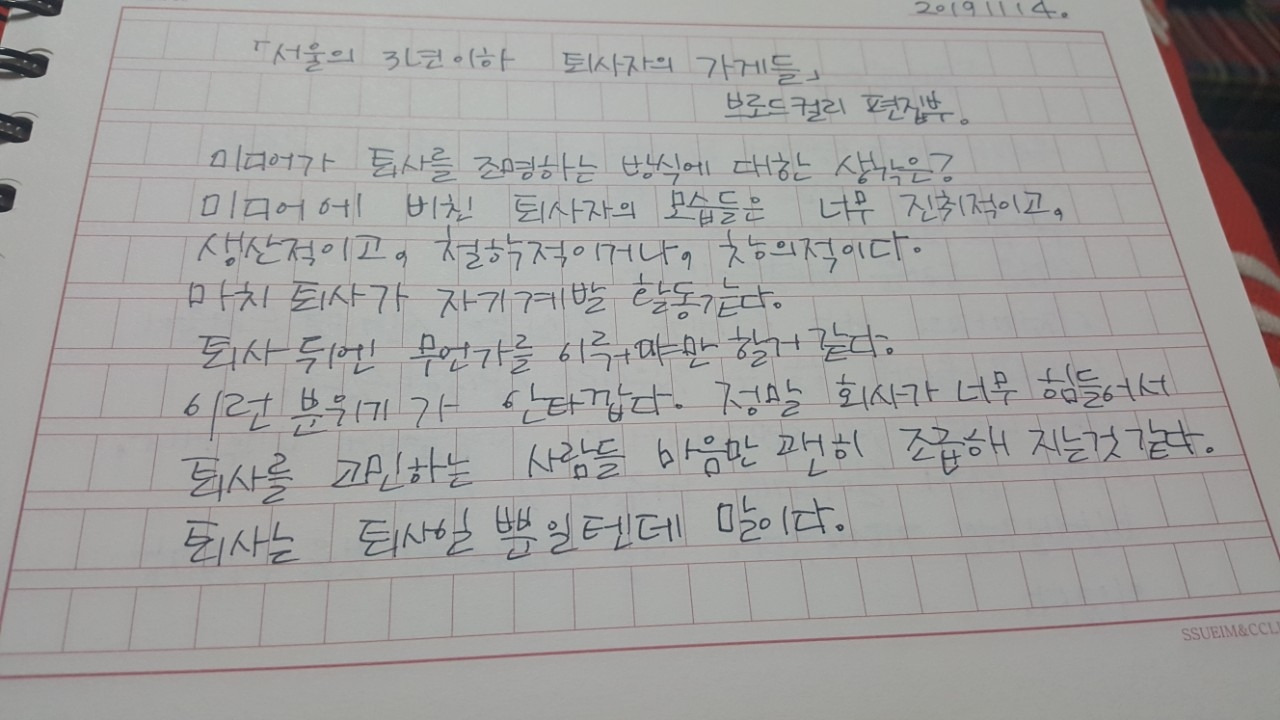 20191114.
「서울의 3년이하 퇴사자의 가게들」
브로드컬리 편집부.
미디어가 퇴사를 조명하는 방식에 대한 생각은?
미디어에 비친 퇴사자의 모습들은 너무 진취적이고,
생산적이고, 철학적이거나, 창의적이다.
마치 퇴사가 자기계발 활동같다.
퇴사 뒤엔 무언가를 이루어야만 할거 같다.
이런 분위기가 안타깝다. 정말 회사가 너무 힘들어서
퇴사를 고민하는 사람들 마음만 괜히 조급해 지는것 같다.
퇴사는 퇴사일 뿐일텐데 말이다.